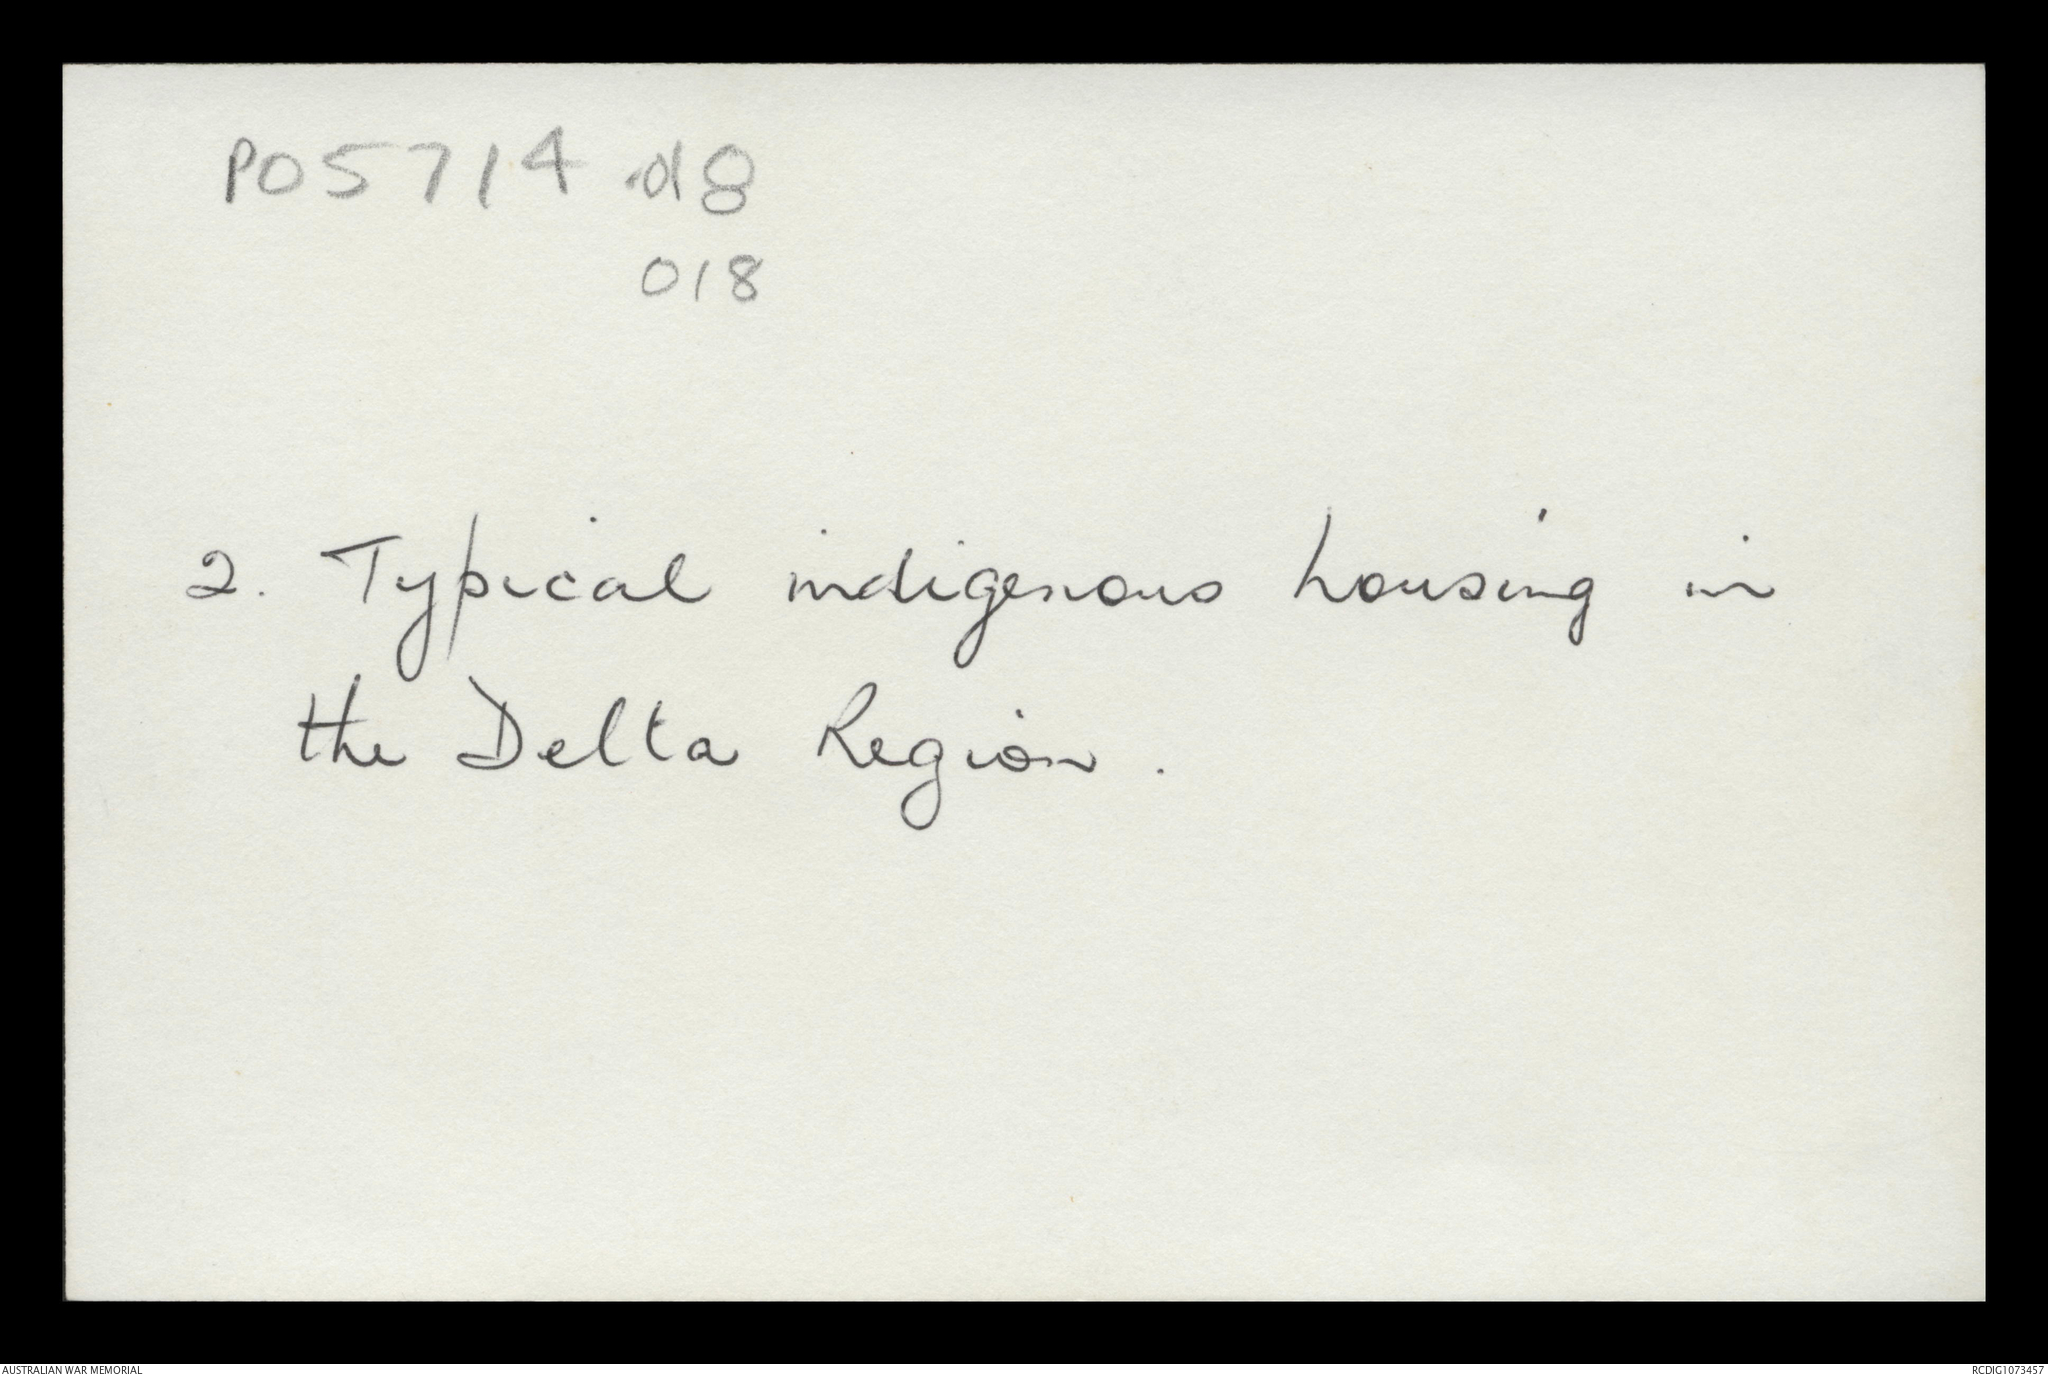 P05714.018
018
2. Typical indigenous housing in
the Delta Region.
AUSTRALIAN WAR MEMORIAL
RCDIG1073457